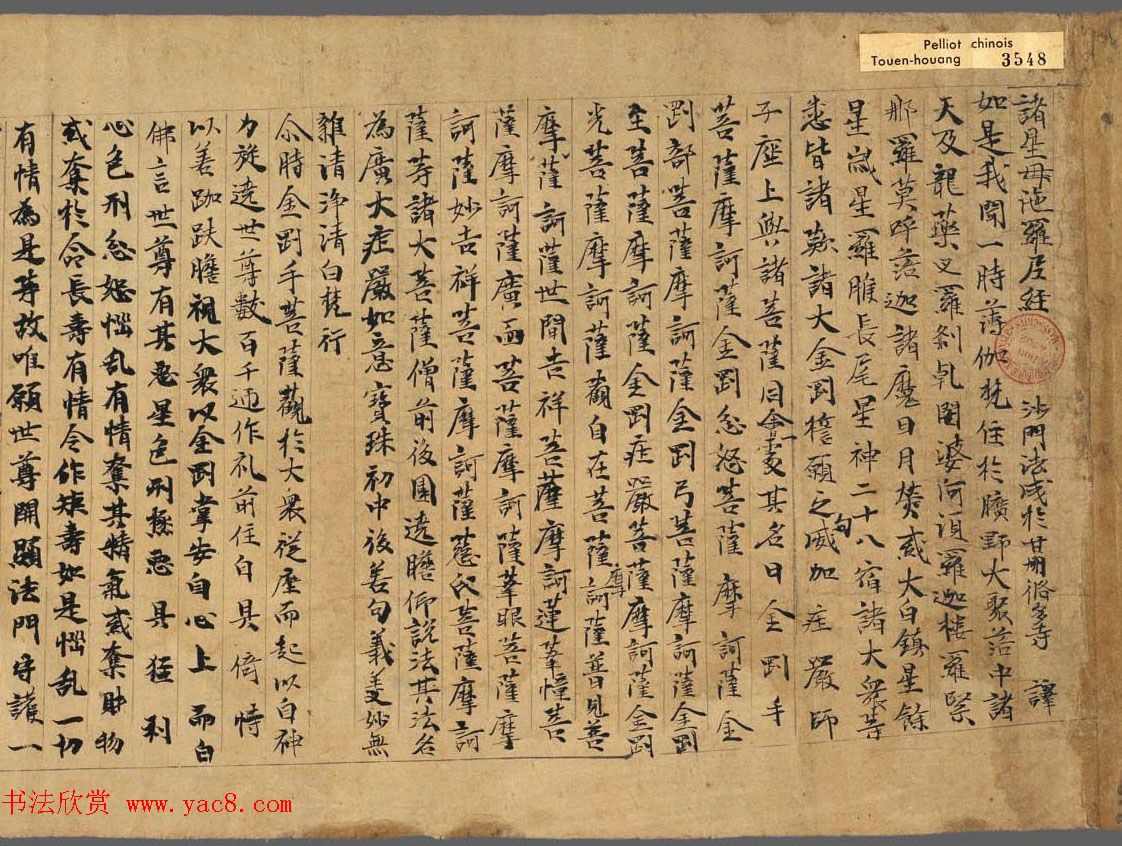 Pelliot chinois
Touen-houang 3548
諸星母陁羅尼經 沙門法成於甘州脩多寺 譯
如是我聞一時薄伽梵住於曠野大聚落中諸
天及龍藥叉羅刹乹闥婆阿須羅迦樓羅緊
那羅莫呼落迦諸魔日月熒惑太白鎮星餘
星歲星羅睺長尾星神二十八宿諸大衆等
悉皆諸讃諸大金剛誓願之句威加庄嚴師
子座上與諸菩薩同會一處其名曰金剛手
菩薩摩訶薩金剛忿怒菩薩摩訶薩金
剛部菩薩摩訶薩金剛弓菩薩摩訶薩金剛
主菩薩摩訶薩金剛庄嚴菩薩摩訶薩金剛
光菩薩摩訶薩觀自在菩薩摩訶薩普見菩
薩摩訶薩世間吉祥菩薩摩訶薩蓮華幢菩
薩摩訶薩廣面菩薩摩訶薩華眼菩薩摩
訶薩妙吉祥菩薩摩訶薩慈氏菩薩摩訶
薩等諸大菩薩僧前後圍遶瞻仰說法其法名
為廣大庄嚴如意寶珠初中後善句義美妙無
雜清淨清白梵行
尒時金剛手菩薩觀於大衆從座而起以自神
力旋遶世尊數百千迊作礼前住自具倚恃
以善跏趺瞻視大衆以金剛掌安自心上而白
佛言世尊有其惡星色刑極惡具猛利
心色刑忿怒惱乱有情奪其精氣或奪財物
或奪於命長壽有情令作短壽如是惱乱一切
有情為是等故唯願世尊開顯法門守護一
书法欣赏 www.yac8.com